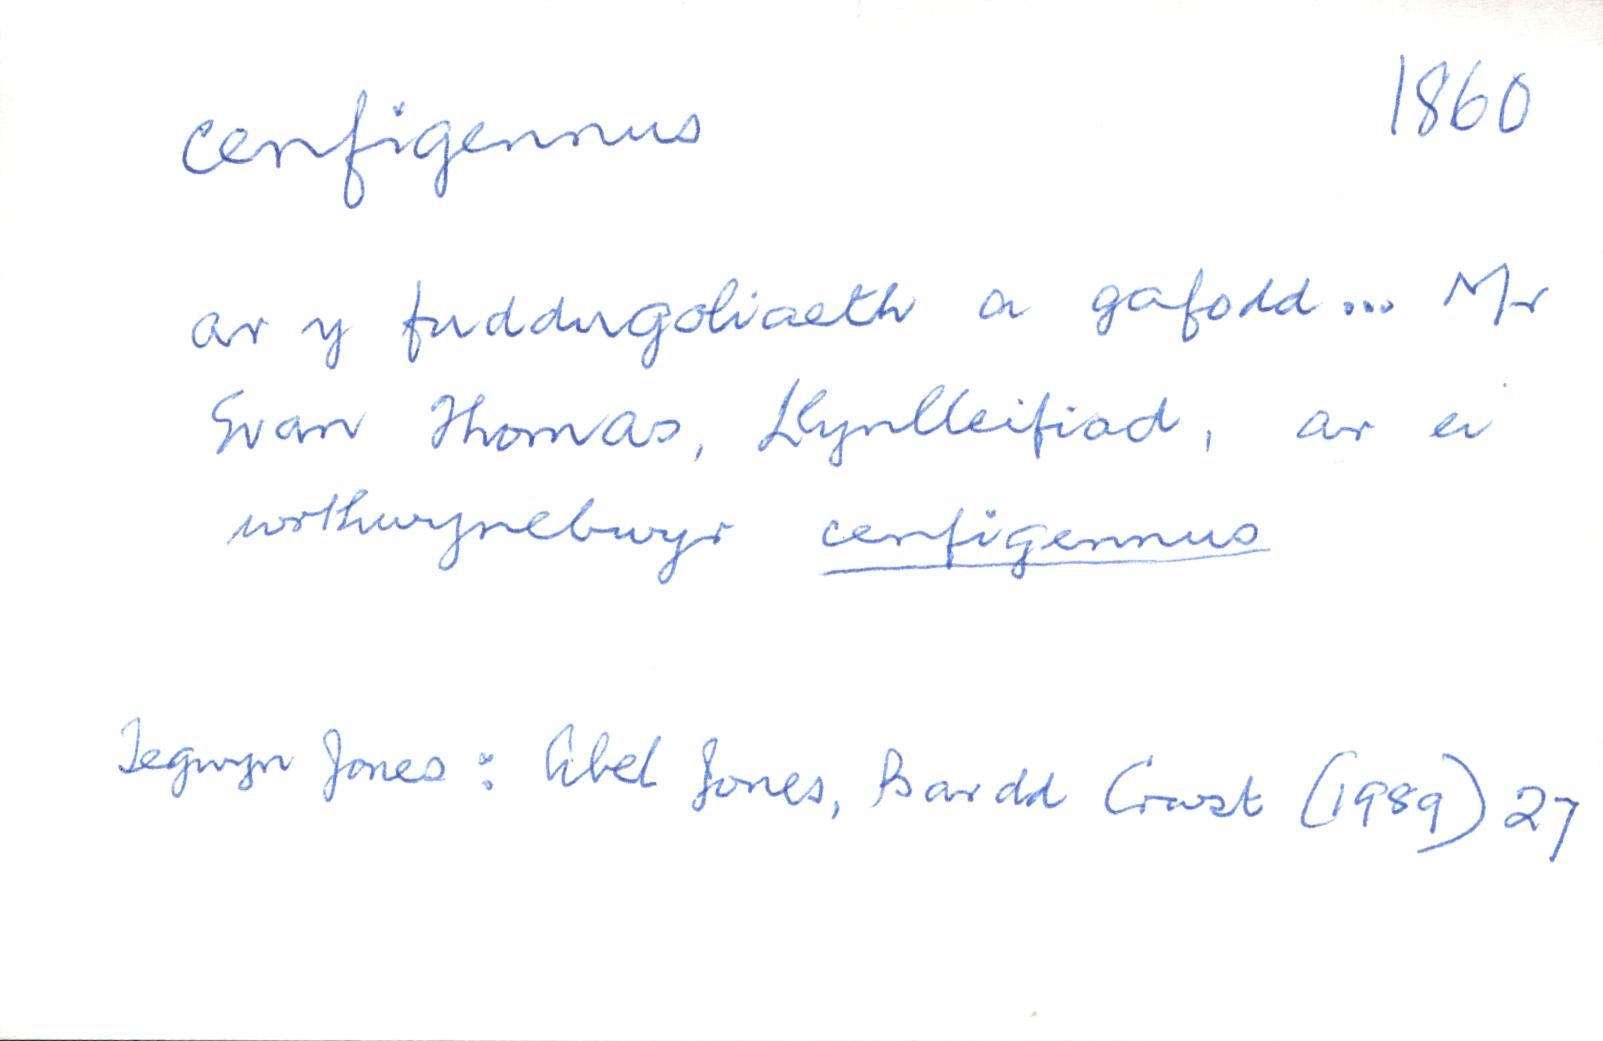 cenfigennus 1860
ar y fuddugoliaeth a gafodd... Mr
Evan Thomas, Llynlleifiad, ar ei
wrthwynebwyr cenfigennus
Tegwyn Jones: Abel Jones, Bardd Crwst (1989) 27